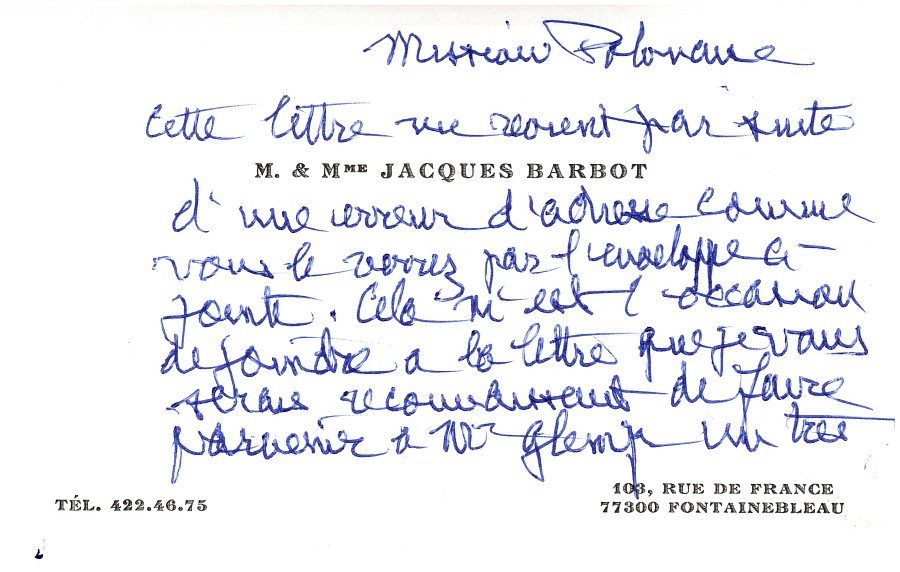 Monsieur Polonaise
Cette lettre me revient par suite
M. & MME JACQUES BARBOT
d'une erreur d'adresse comme
vous le verrez par l'enveloppe ci-
jointe. Cela m'est l'occasion
de joindre a la lettre que je vous
serais reconnaissant de faire
parvenir a Mgr Glemp un très
TÉL. 422.46.75
103, RUE DE FRANCE
77300 FONTAINEBLEAU